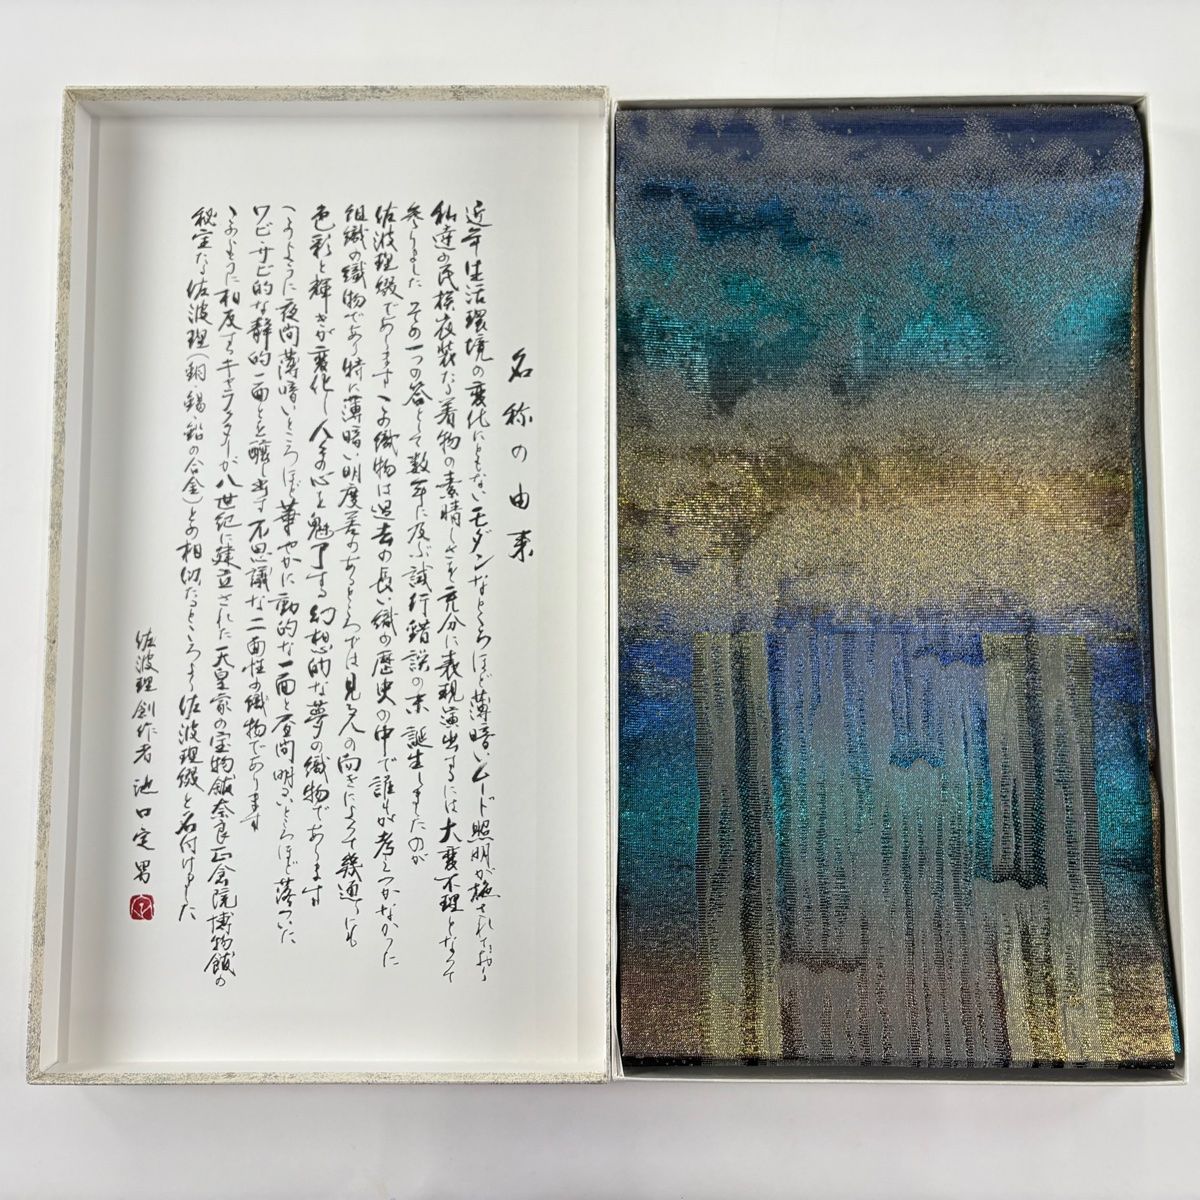 名称の由来
近年生活環境の変化にともないモダンなところほど薄暗いムード照明が施されており
私達の民族衣装なる着物の素晴しさを充分に表現演出するには大変不理となって
参りました その一つの答として数年に及ぶ試行錯誤の末 誕生しましたのが
佐波理綴であります この織物は過去の長い織の歴史の中で誰もが考えつかなかった
組織の織物であり特に薄暗い明度差のあるところでは見る人の向きによって幾通りにも
色彩と輝きが変化し人々の心を魅了する幻想的な夢の織物であります
このように夜間薄暗いところほど華やかに動的な一面と昼間明るいところほど落ついた
ワビ・サビ的な静的一面とを醸し出す不思議な二面性の織物であります
このように相反するキャラクターが八世紀に建立された天皇家の宝物館奈良正倉院博物館の
秘宝たる佐波理(銅・錫・鉛の合金)との相似たるところより佐波理綴と名付けました
佐波理創作者 池口定男